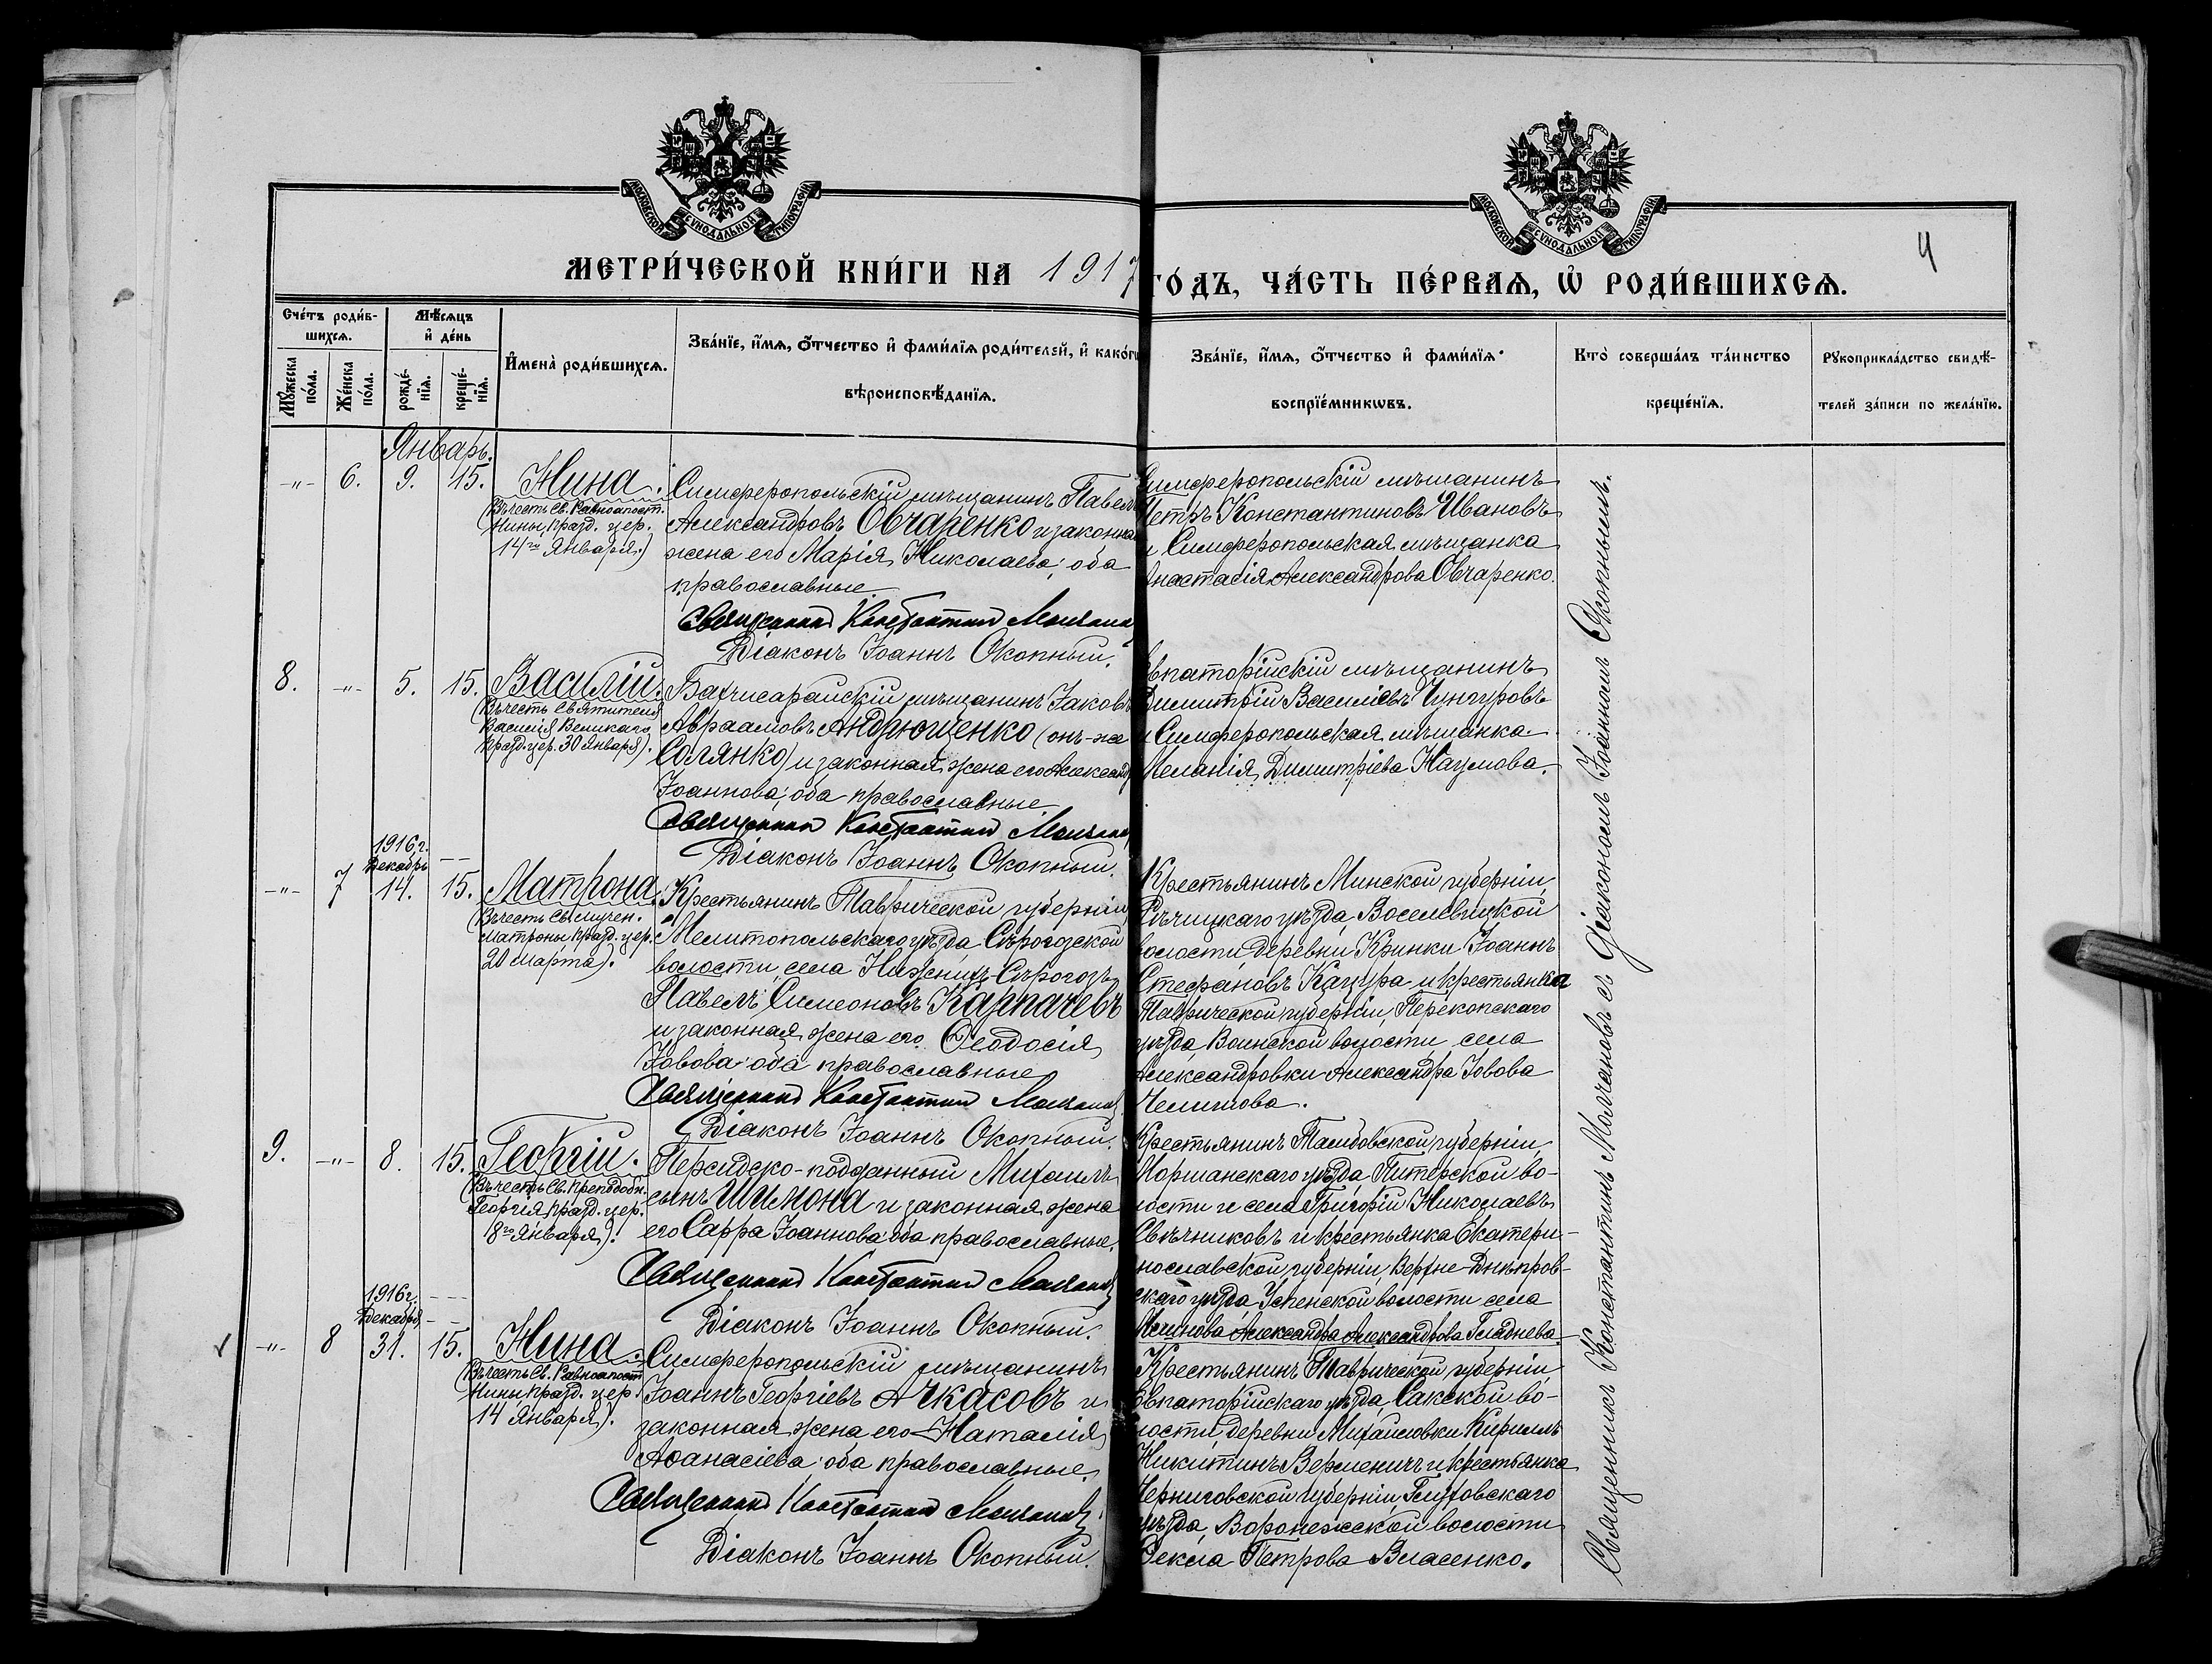 МОСКОВСКОЙ СѴНОДАЛЬНОЙ ТИПОГРАФІИ
МОСКОВСКОЙ СѴНОДАЛЬНОЙ ТИПОГРАФІИ
4
МЕТРИ́ЧЕСКОЙ КНИ́ГИ НА 1917 ГО́ДЪ, ЧА́СТЬ ПЕ́РВАѦ, Ѡ҆ РОДИ́ВШИХСѦ.
Сче́тъ роди́в-
шихсѧ.
Мꙋ́жеска по́ла.
Же́нска по́ла.
Мѣ́сѧцъ
и҆ де́нь
рожде́-
нїѧ.
креще́-
нїѧ.
И҆мена̀ роди́вшихсѧ.
Зва́нїе, и҆́мѧ, ѻ҆́тчество и҆ фами́лїѧ роди́телей, и҆ како́гѡ
вѣроисповѣ́данїѧ.
Зва́нїе, и҆́мѧ, ѻ҆́тчество и҆ фами́лїѧ
воспрїе́мникѡвъ.
Кто̀ соверша́лъ та́инство
креще́нїѧ.
Рꙋкоприкла́дство свидѣ́-
телей за́писи по жела́нїю.
Январь.
-"- 6. 9. 15. Нина.
(Въ честь Св. Равноапост.
Нины, празд. цер.
14го Января.)
Симферопольскій мѣщанинъ Павелъ
Александровъ Овчаренко и законная
жена его Марія Николаева; оба
православные.
Священникъ Константинъ Молчановъ
Діаконъ Іоаннъ Окопный.
Симферопольскій мѣщанинъ
Петръ Константиновъ Ивановъ
и Симферопольская мѣщанка
Анастасія Александрова Овчаренко.
8. -"- 5. 15. Василій.
(Въ честь Святителя
Василія Великаго,
празд. цер. 30 Января).
Бахчисарайскій мѣщанинъ Іаковъ
Авраамовъ Андрющенко (онъ-же
Солянко) и законная жена его Александра
Іоаннова; оба православные
Священникъ Константинъ Молчановъ
Діаконъ Іоаннъ Окопный.
Евпаторійскій мѣщанинъ
Димитрій Василіевъ Чунгуровъ
и Симферопольская мѣщанка
Меланія Димитріева Наумова.
1916 г.
Декабрь
-"- 7 14. 15. Матрона.
(Въ честь Св. мучен.
Матроны, празд. цер.
20 марта).
Крестьянинъ Таврической губерніи,
Мелитопольскаго уѣзда, Сѣрогозской
волости, села Нижнихъ-Сѣрогозъ
Павелъ Симеоновъ Карпачевъ
и законная жена его Ѳеодосія
Іовова; оба православные
Священникъ Константинъ Молчановъ
Діаконъ Іоаннъ Окопный.
Крестьянинъ Минской губерніи,
Рѣчицкаго уѣзда, Василевицкой
волости, деревни Кринки Іоаннъ
Стефановъ Кацура и крестьянка
Таврической губерніи, Перекопскаго
уѣзда, Воинской волости, села
Александровки Александра Іовова
9. -"- 8. 15. Георгій.
(Въ честь Св. Преподобн.
Георгія, празд. цер.
8го Января).
Персидско-подданный Михаилъ
сынъ Шимона и законная жена
его Сарра Іоаннова; оба православные.
Священникъ Константинъ Молчановъ
Діаконъ Іоаннъ Окопный.
Крестьянинъ Тамбовской губерніи,
Моршанскаго уѣзда, Питерской во-
лости и села Григорій Николаевъ
Свѣчниковъ и крестьянка Екатери-
нославской губерніи, Верхне-Днѣпров-
скаго уѣзда, Успенской волости, села
Александра Александрова Гладнева.
1916 г.
Декабрь
-"- 8 31. 15. Нина.
(Въ честь Св. Равноапост.
Нины, празд. цер.
14 Января).
Симферопольскій мѣщанинъ
Іоаннъ Георгіевъ Ачкасовъ и
законная жена его Наталія
Аѳанасіева; оба православные.
Священникъ Константинъ Молчановъ
Діаконъ Іоаннъ Окопный.
Крестьянинъ Таврической губерніи,
Евпаторійскаго уѣзда, Сакской во-
лости, деревни Михайловки Кириллъ
Никитинъ Верменичъ и крестьянка
Черниговской губерніи, Глуховскаго
уѣзда, Воронежской волости
Ѳекла Петрова Власенко.
Священникъ Константинъ Молчановъ съ Діакономъ Іоанномъ Окопнымъ.